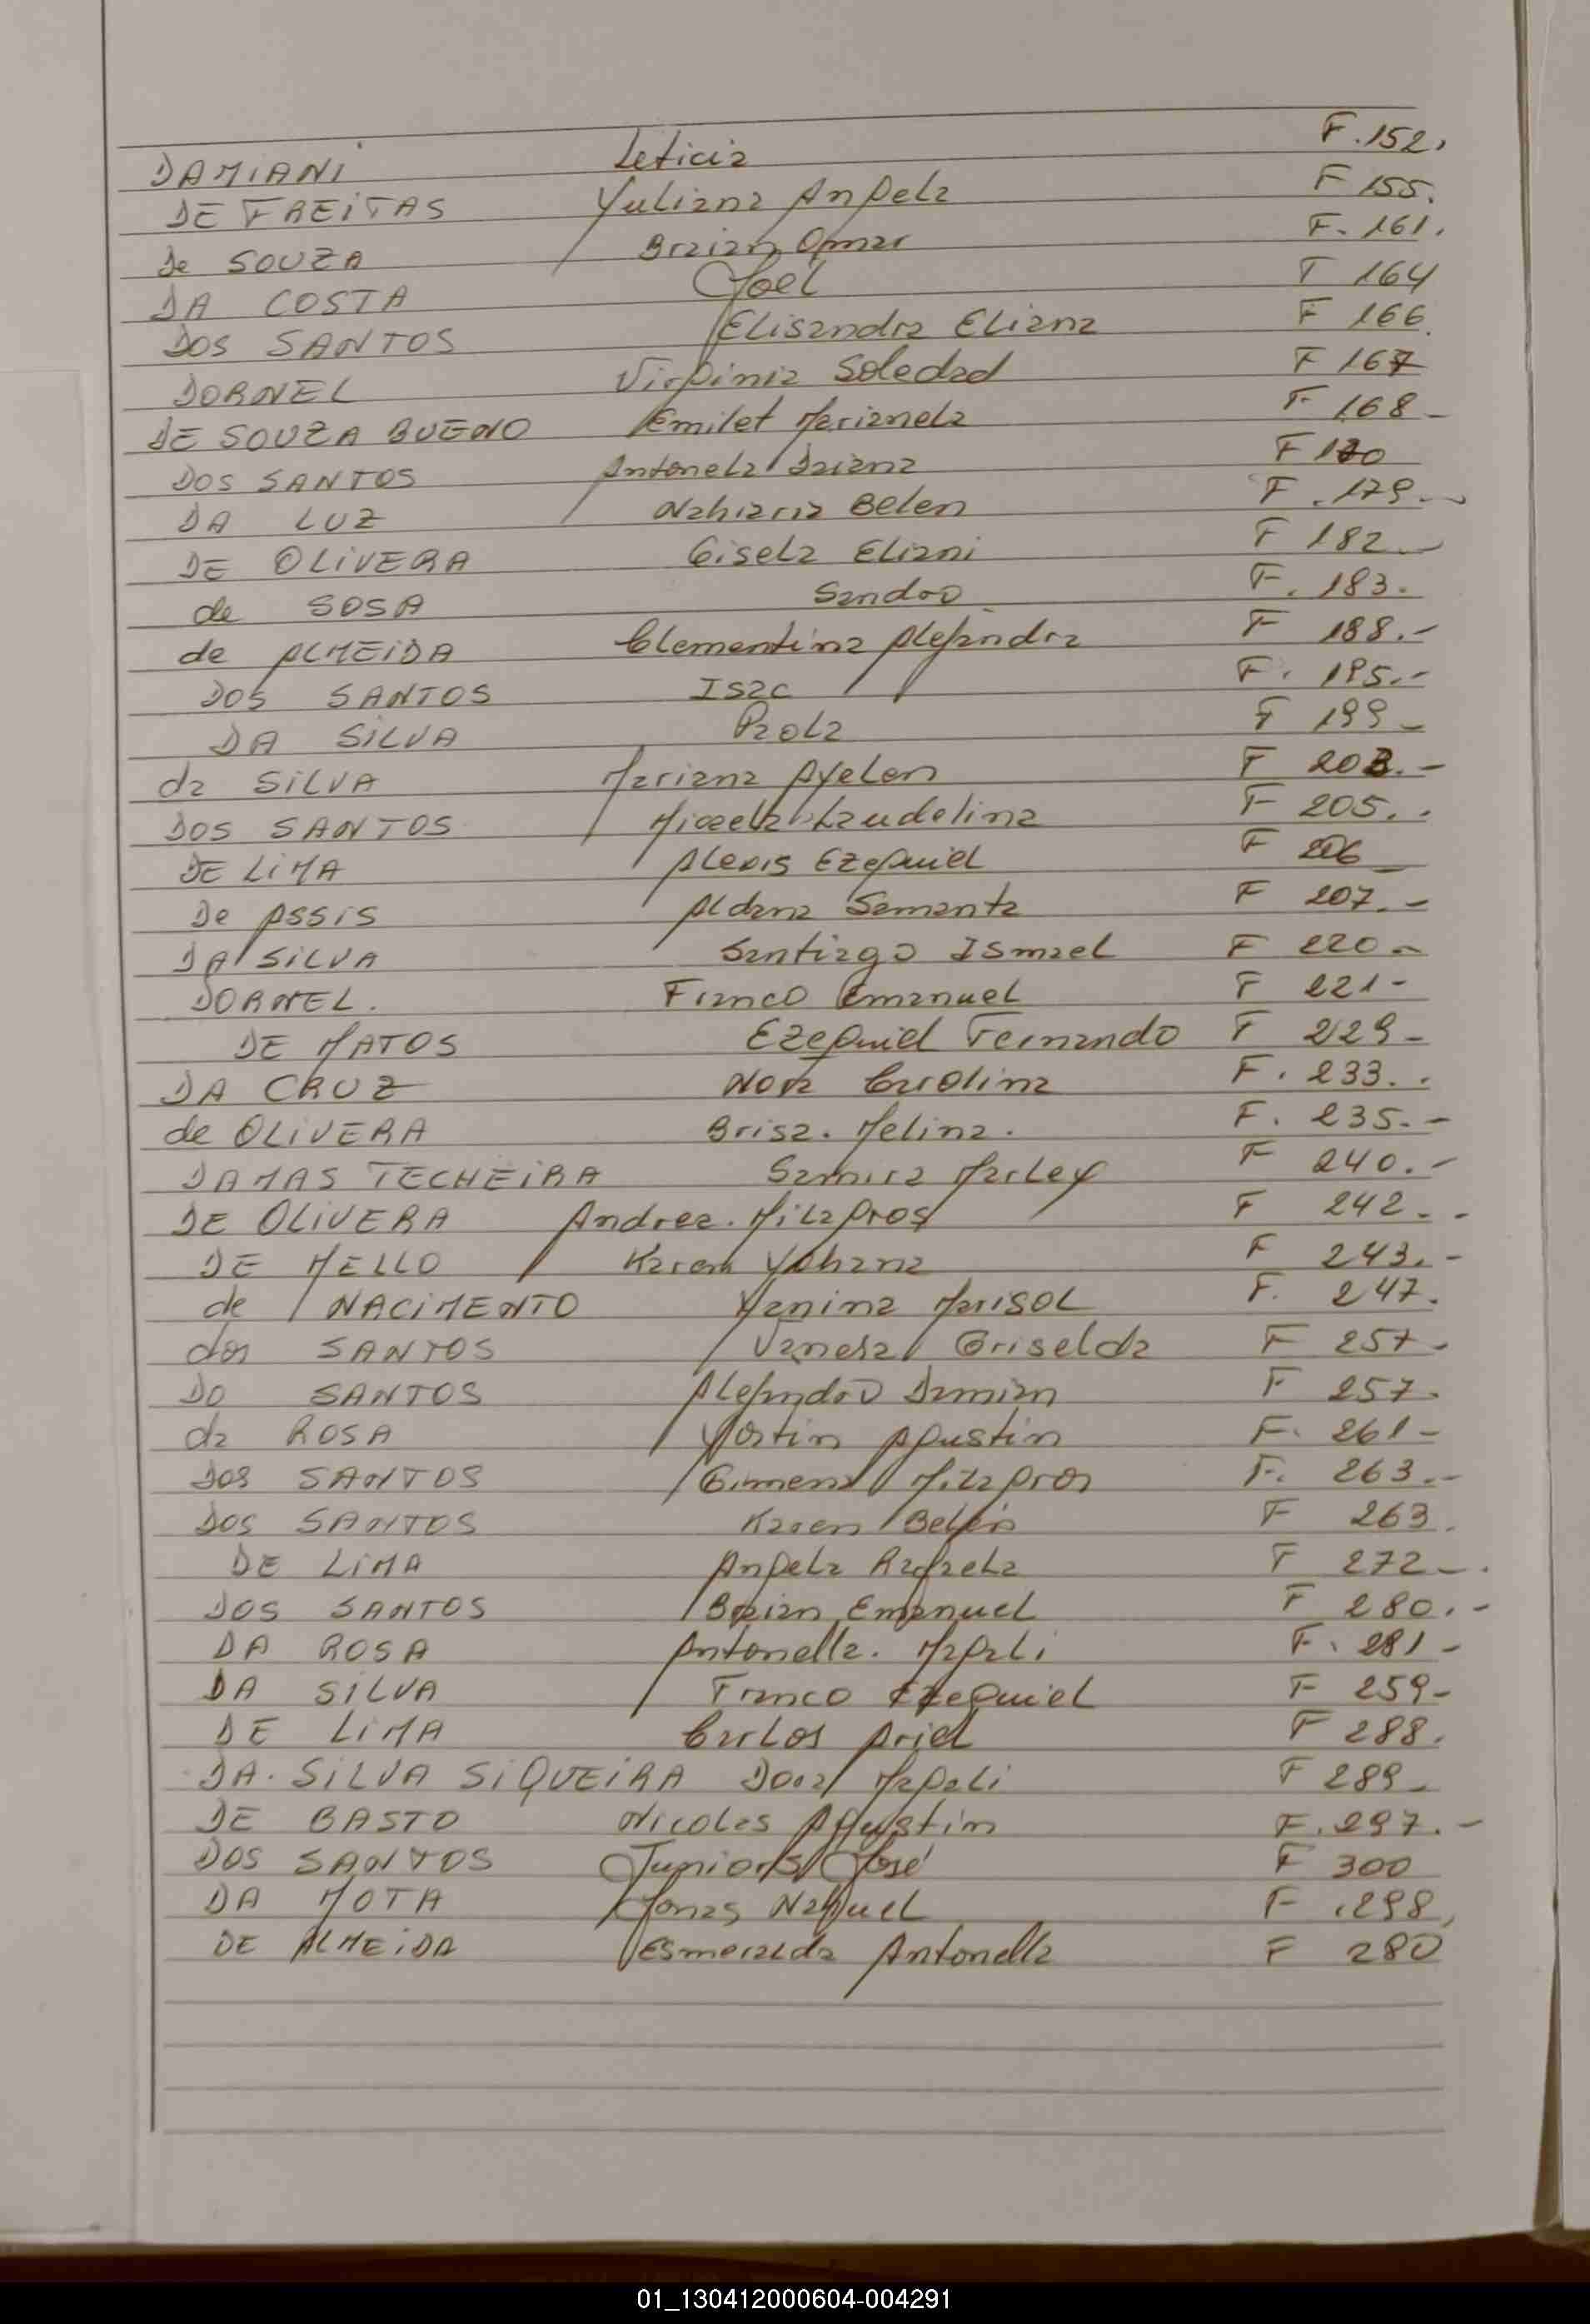 DAMIANI Leticia F. 152.
DE FREITAS Yuliana Angela F 155.
De SOUZA Braian Omar F. 161.
DA COSTA Joel F 164
DOS SANTOS Elisandra Eliana F 166.
DORNEL Virginia Soledad F 167
DE SOUZA BUENO Emilet Marianela F 168-
DOS SANTOS Antonela Daiana F 170
DA LUZ Nahiara Belen F. 179.-
DE OLIVERA Gisela Eliani F 182.-
de SOSA Sandro F. 183.
de ALMEIDA Clementina Alejandra F 188.-
DOS SANTOS Isac F. 195.-
DA SILVA Paola F 199-
da SILVA Mariana Ayelen F 203.-
DOS SANTOS Micaela Laudelina F 205..
DE LIMA Alexis Ezequiel F 206
De Assis Aldana Samanta F 207.-
DA SILVA Santiago Ismael F 220-
DORNEL. Franco Emanuel F 221-
DE MATOS Ezequiel Fernando F 229-
DA CRUZ Nora Carolina F. 233..
de OLIVERA Brisa. Melina. F. 235.-
DAMAS TECHEIRA Samira Marley F 240.-
DE OLIVERA Andrea. Milagros F 242..
DE MELLO Karen Yohana F 243.-
de NACIMENTO Yanina Marisol F. 247.
dos SANTOS Vanesa Griselda F 257-
DO SANTOS Alejandro Damian F 257.
da ROSA Yostin Agustin F. 261-
DOS SANTOS Gimena Milagros F. 263.-
DOS SANTOS Karen Belén F 263.
DE LIMA Angela Rafaela F 272-.
DOS SANTOS Braian Emanuel F 280.-
DA ROSA Antonella. Magali F. 281-
DA SILVA Franco Ezequiel F 259-
DE LIMA Carlos Ariel F 288.
DA. SILVA SiQUEIRA Dora Magali F 289-
DE BASTO Nicolas Agustin F. 297.-
DOS SANTOS Juniors José F 300
DA MOTA Jonas Nahuel F .298,
DE ALMEIDA Esmeralda Antonella F 280
01_130412000604-004291